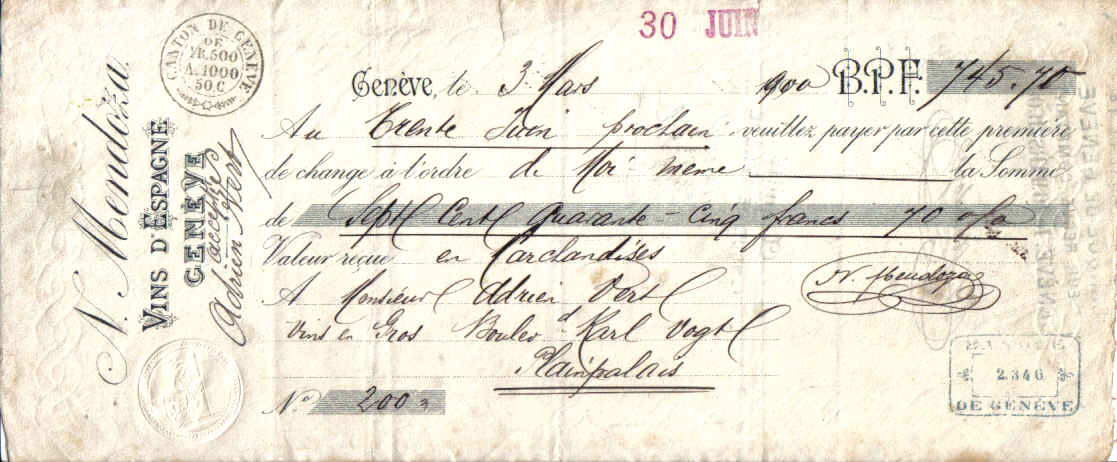 30 JUIN
CANTON DE GENÈVE
DE
FR. 500
A. 1000
50 C
N. Mendoza.
VINS D'ESPAGNE
GENÈVE
accepté
Adrien Vert
Genève, le 3 Mars 1900 B.P.F. 745.70
Au Trente Juin prochain veuillez payer par cette première
de change à l'ordre de Moi même la Somme
de Sept Cent Quarante-cinq francs 70
Valeur reçue en Marchandises
N. Mendoza
A Monsieur Adrien Vert
Vins en Gros Boulevd Karl Vogt
Plainpalais
No 200
2346
DE GENÈVE